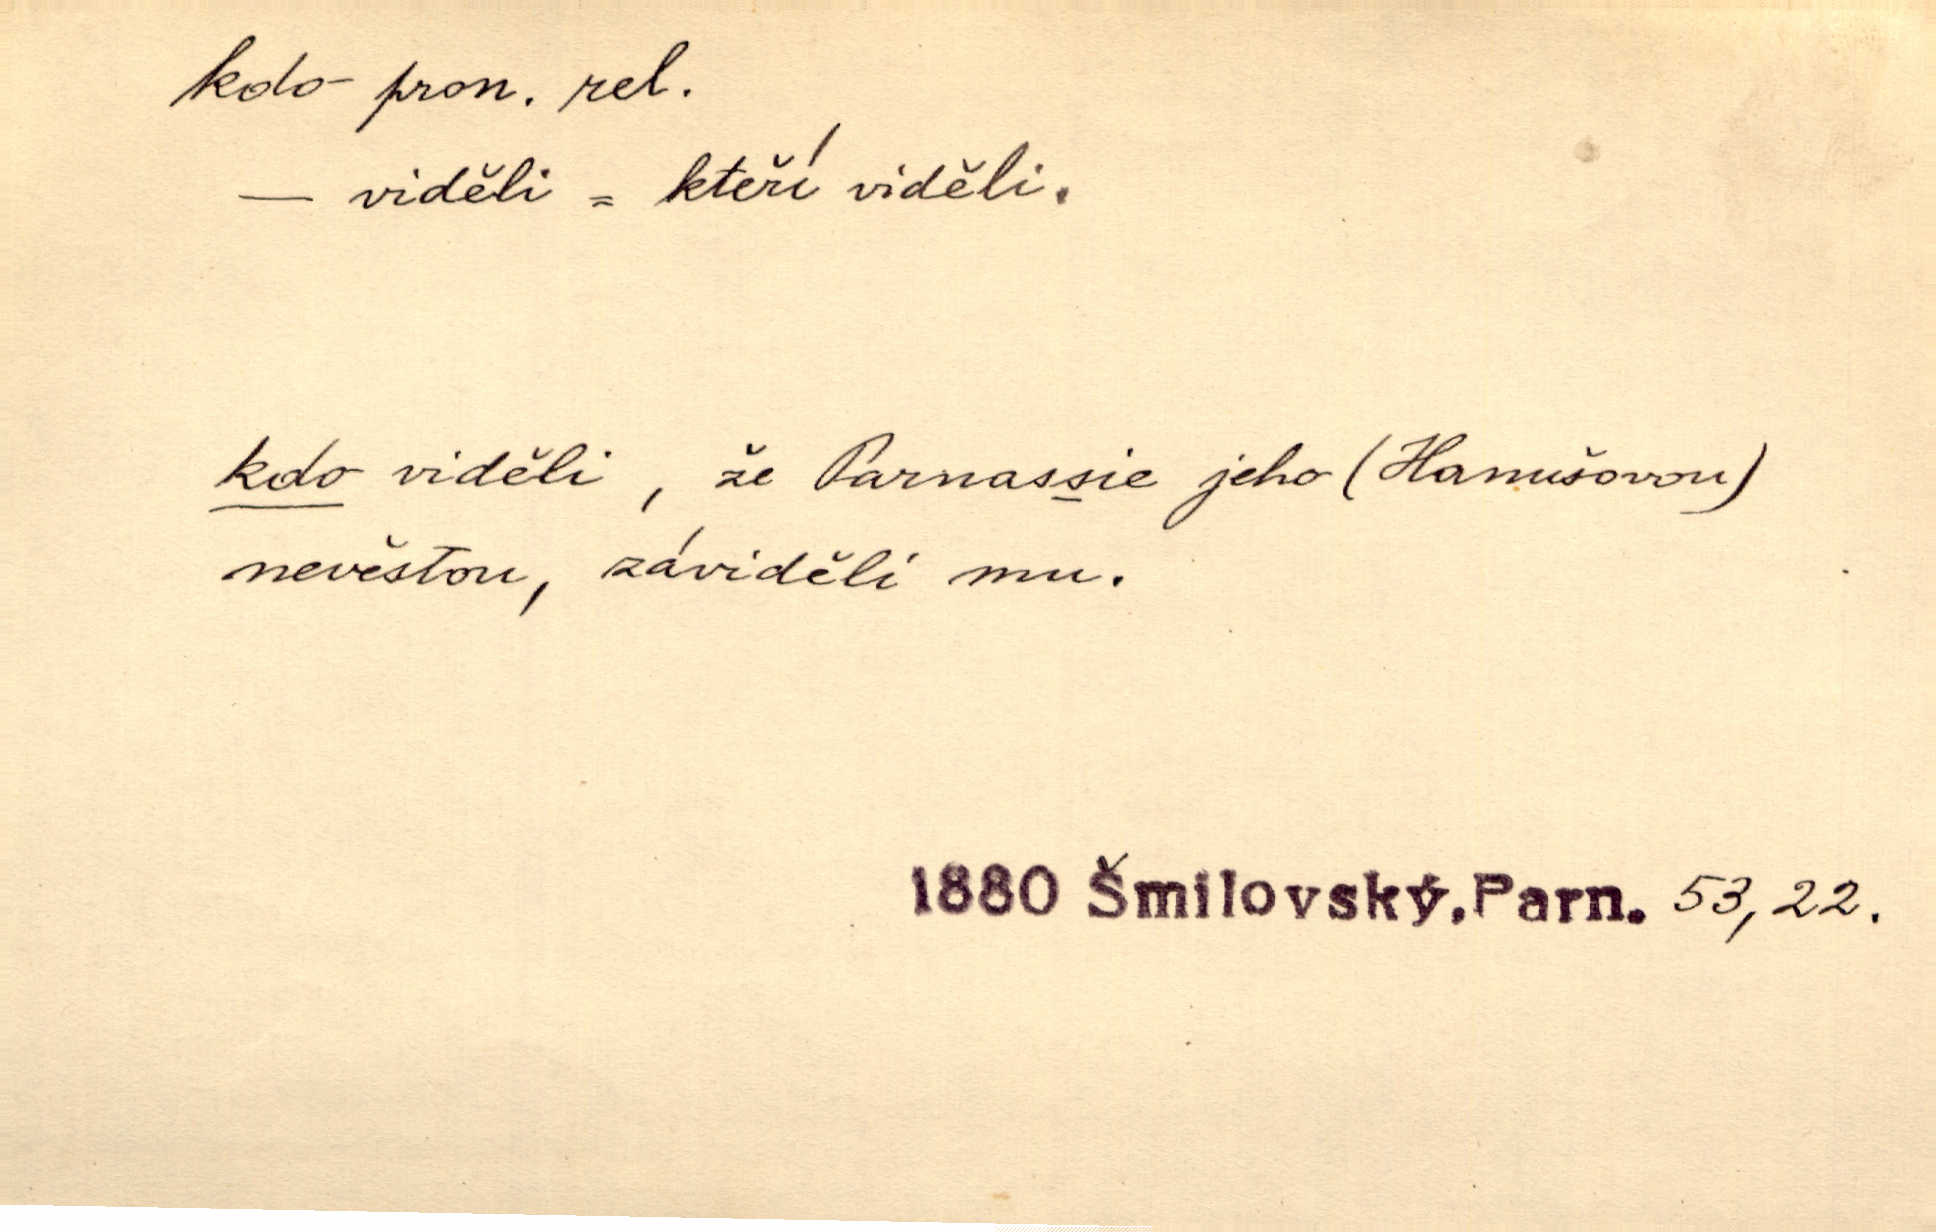 kdo pron. rel.
— viděli = kteří viděli.
kdo viděli, že Parnassie jeho (Hanušovou)
nevěstou, záviděli mu.
1880 Šmilovský, Parn. 53, 22.